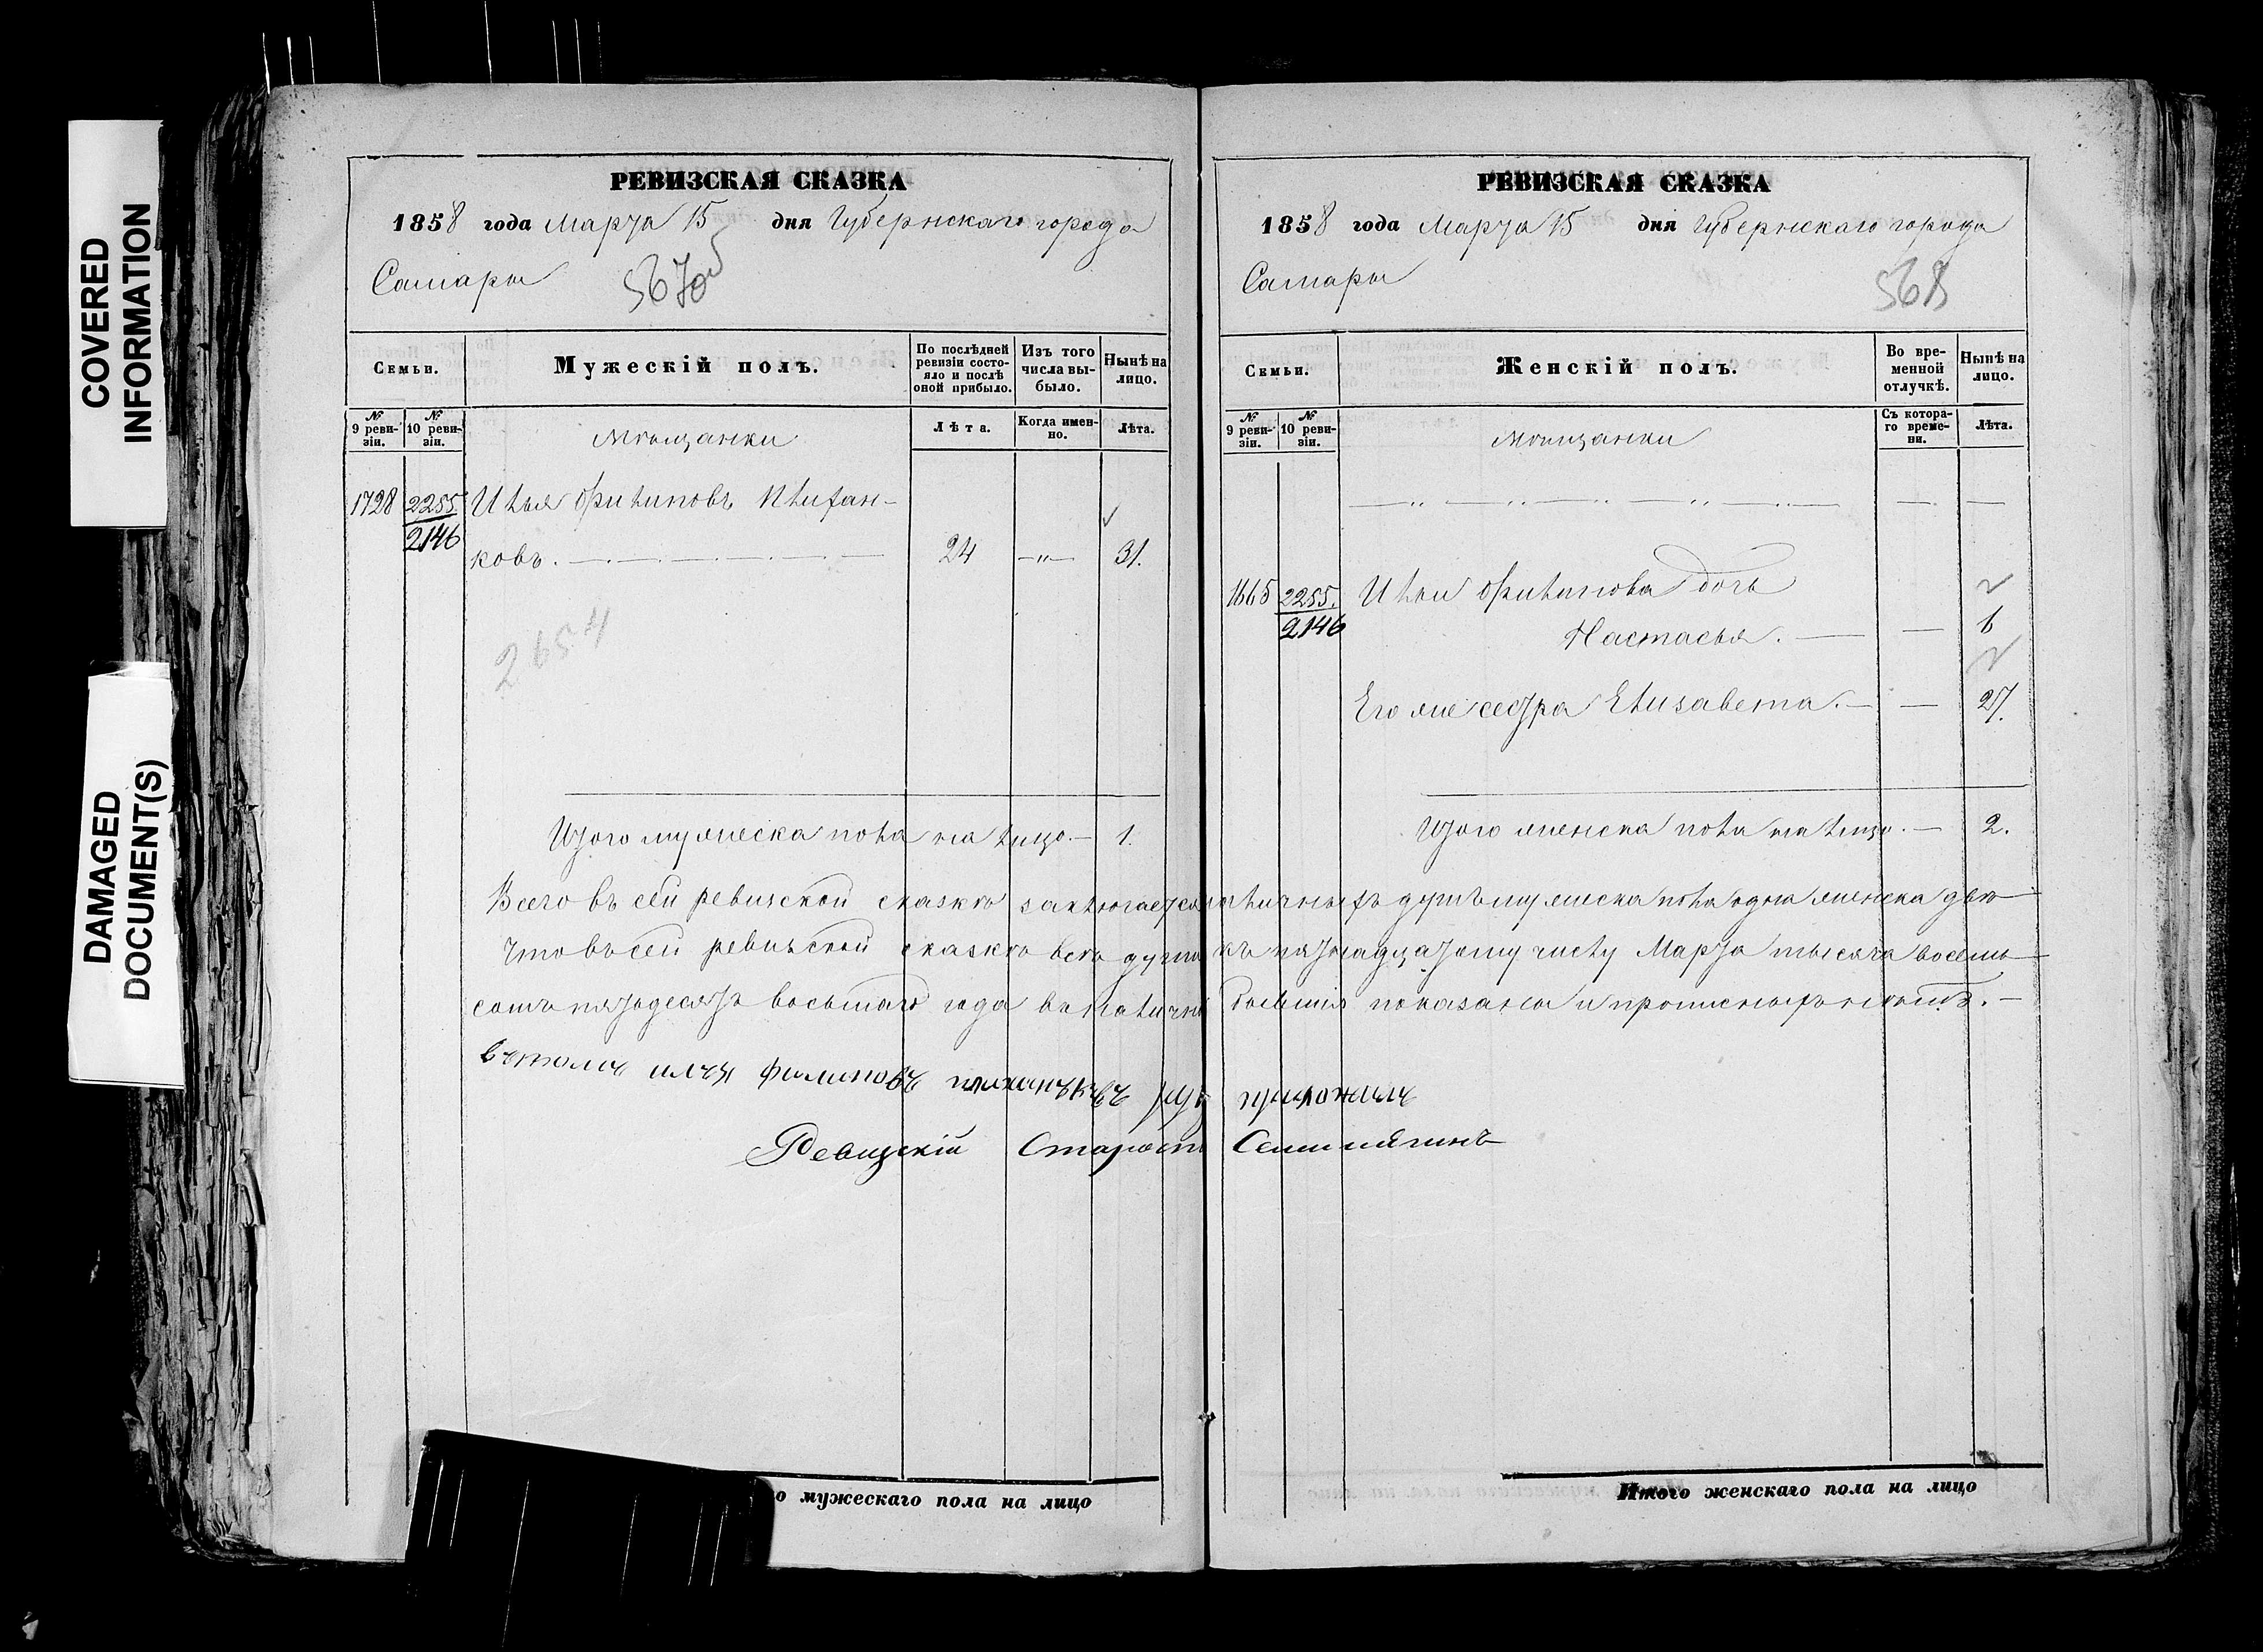 COVERED
INFORMATION
DAMAGED
DOCUMENT(S)
РЕВИЗСКАЯ СКАЗКА
1858 года Марта 15 дня Губернскаго города
Самары
567об
Семьи.
Мужескій полъ.
По послѣдней ревизіи состояло и послѣ оной прибыло.
Изъ того числа выбыло.
Нынѣ на лицо.
№ 9 ревизіи.
№ 10 ревизіи.
Мѣщанки
Лѣта.
Когда именно.
Лѣта.
1728 2255 Илья Филиповъ Плихан-
2146
ковъ. 24 —„— 31.
2654
Итого мужеска пола на лицо.— 1.
РЕВИЗСКАЯ СКАЗКА
1858 года Марта 15 дня Губернскаго города
Самары
568
Семьи.
Женскій полъ.
Во временной отлучкѣ.
Нынѣ на лицо.
№ 9 ревизіи.
№ 10 ревизіи.
Мѣщанки
Съ котораго времени.
Лѣта.
1665 2255. Ильи Филипова дочь
2146
Настасья. — — 1
Его же сестра Елизавета.— — 27.
Итого женска пола на лицо.— 2.
Всего въ сей ревизской сказкѣ заключается наличныхъ душъ мужеска пола одна женска двѣ
Что въ сей ревизской сказкѣ всѣ души къ пятнадцатому числу Марта тысяча восемь
сотъ пятьдесятъ восьмаго года въ наличіи бывшія показаны и прописныхъ нѣтъ.—
втомъ илья филиповъ руку приложилъ
Ревизскій Староста
о мужескаго пола на лицо
Итого женскаго пола на лицо